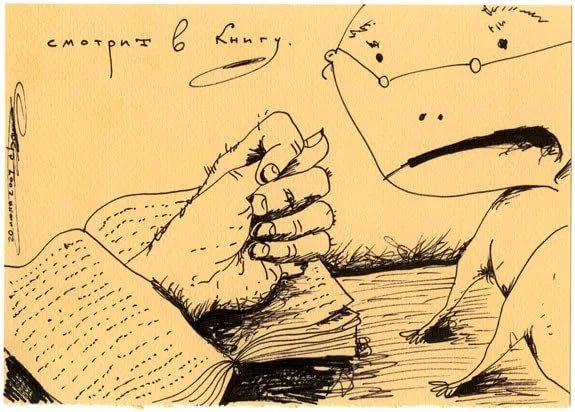 смотрит в книгу.
20 июня 2007